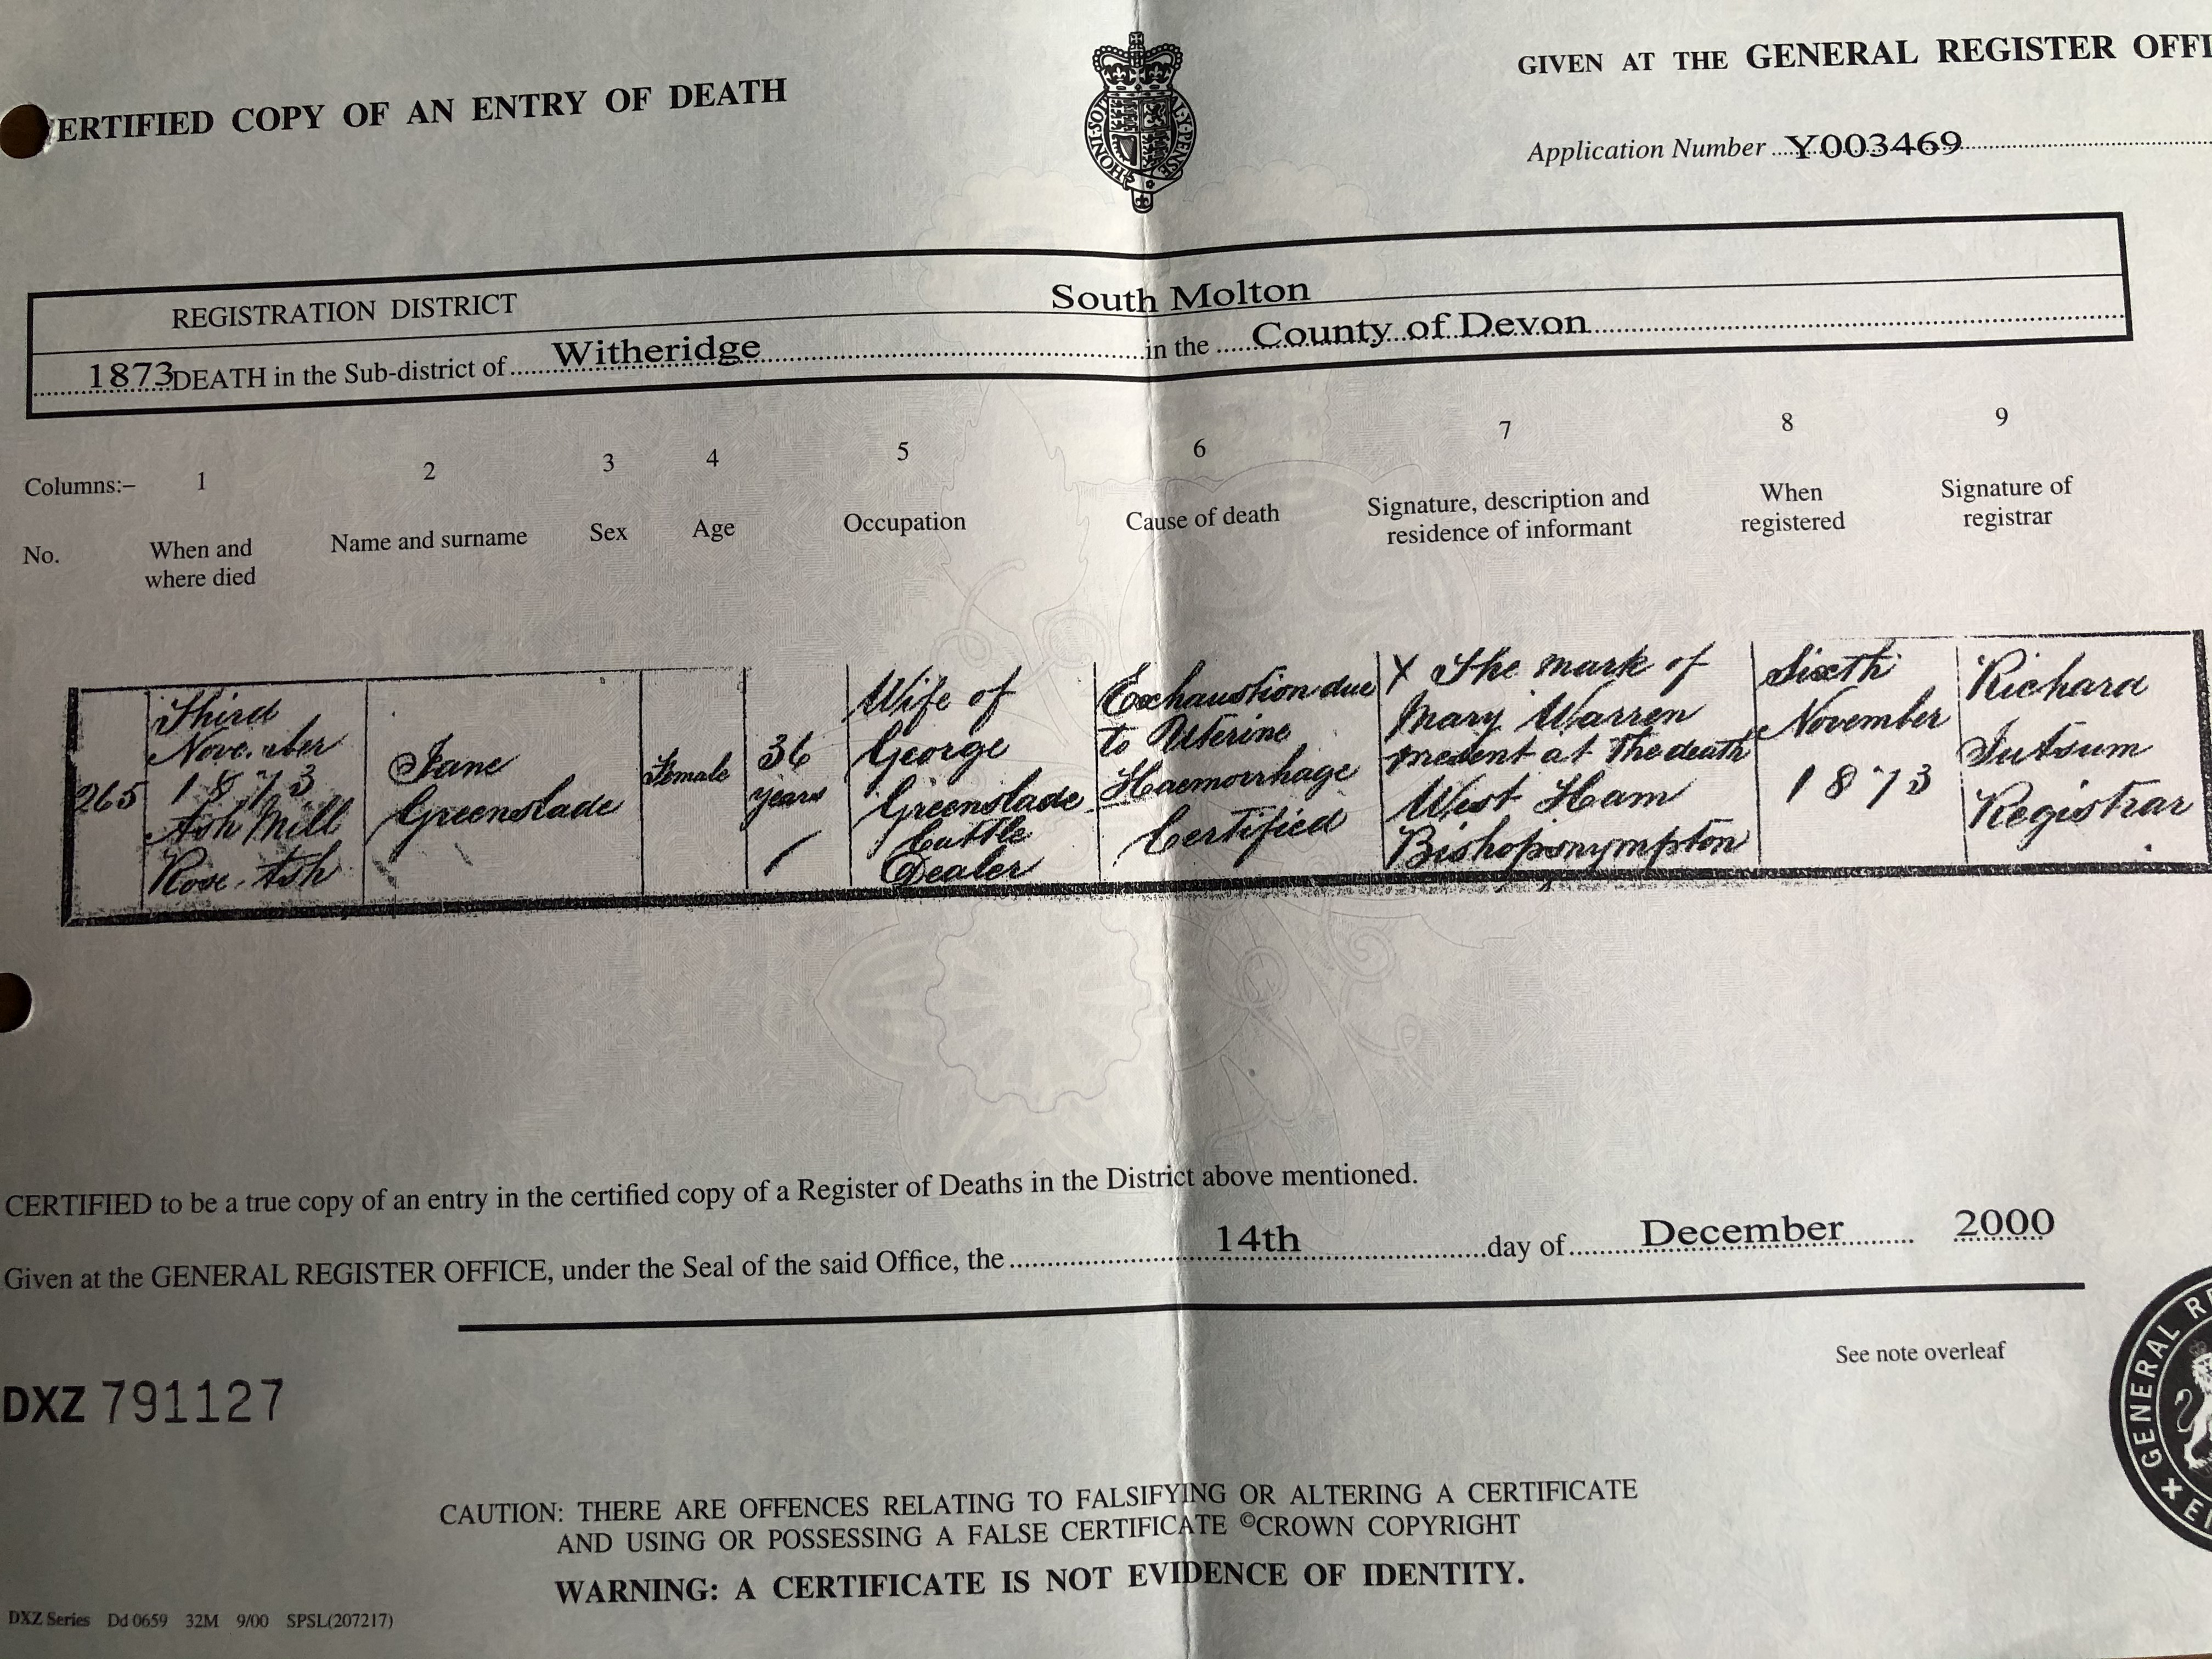 ERTIFIED COPY OF AN ENTRY OF DEATH
GIVEN AT THE GENERAL REGISTER OFFI
Application Number Y003469
HONI·SOI ALY·PENSE
REGISTRATION DISTRICT South Molton
1873 DEATH in the Sub-district of Witheridge in the County of Devon
Columns:– 1 2 3 4 5 6 7 8 9
No. When and where died Name and surname Sex Age Occupation Cause of death Signature, description and residence of informant When registered Signature of registrar
265
Third
November
1873
Ash Mill
Rose Ash
Jane
Greenslade
Female
36
years
Wife of
George
Greenslade
Cattle
Dealer
Exhaustion due
to Uterine
Haemorrhage
Certified
X The mark of
Mary Warren
present at the death
West Ham
Bishopsnympton
Sixth
November
1873
Richard
Jutsum
Registrar
CERTIFIED to be a true copy of an entry in the certified copy of a Register of Deaths in the District above mentioned.
Given at the GENERAL REGISTER OFFICE, under the Seal of the said Office, the 14th day of December 2000
See note overleaf
DXZ 791127
GENERAL RE
CAUTION: THERE ARE OFFENCES RELATING TO FALSIFYING OR ALTERING A CERTIFICATE
AND USING OR POSSESSING A FALSE CERTIFICATE ©CROWN COPYRIGHT
WARNING: A CERTIFICATE IS NOT EVIDENCE OF IDENTITY.
DXZ Series Dd 0659 32M 9/00 SPSL(207217)